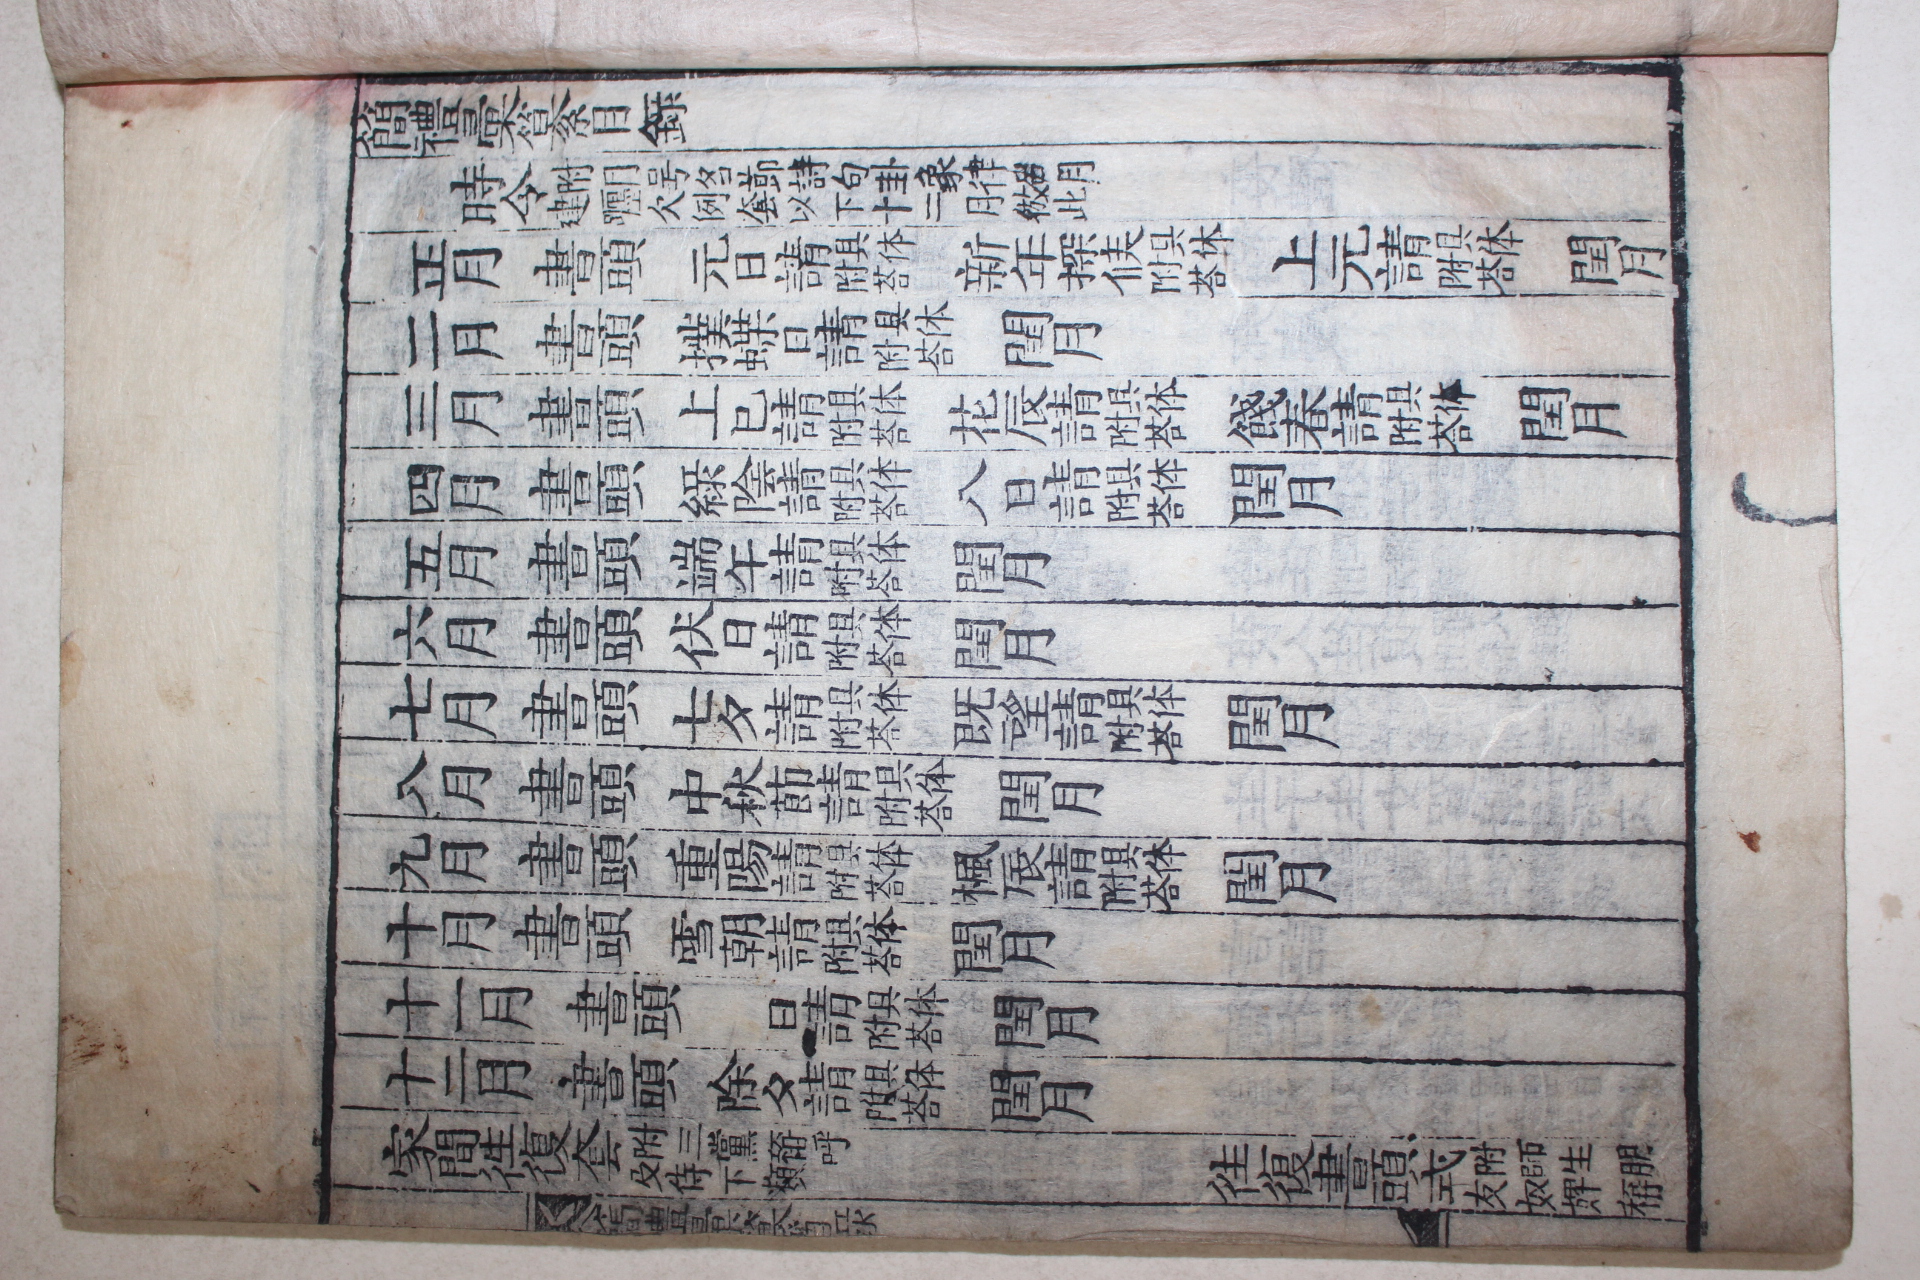 簡禮彙纂目錄
時令 附月号名節詩句卦象律呂月建躔次例套以下十二月倣此
正月 書頭 元日請具体附荅 新年探候具体附荅 上元請具体附荅 閏月
二月 書頭 撲蝶日請具体附荅 閏月
三月 書頭 上巳請具体附荅 花辰請具体附荅 餞春請具体附荅 閏月
四月 書頭 綠陰請具体附荅 八日請具体附荅 閏月
五月 書頭 端午請具体附荅 閏月
六月 書頭 伏日請具体附荅 閏月
七月 書頭 七夕請具体附荅 既望請具体附荅 閏月
八月 書頭 中秋莭請具体附荅 閏月
九月 書頭 重陽請具体附荅 楓辰請具体附荅 閏月
十月 書頭 雪朝請具体附荅 閏月
十一月 書頭 日請具体附荅 閏月
十二月 書頭 除夕請具体附荅 閏月
家間徃復套 附三黨稱呼及侍下類 徃復書頭式 附師生朋友奴婢稱
簡禮彙